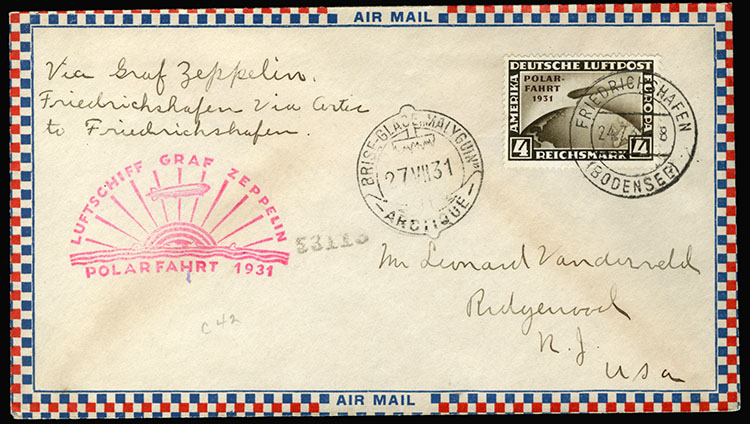 AIR MAIL
Via Graf Zeppelin.
Friedrichshafen via Artic
to Friedrichshafen.
DEUTSCHE LUFTPOST
POLAR-
FAHRT
1931
AMERIKA
EUROPA
4
REICHSMARK
4
FRIEDRICHSHAFEN
(BODENSEE)
BRISE-GLACE "MALYGUIN"
27 VII 31
ARCTIQUE
LUFTSCHIFF GRAF ZEPPELIN
POLARFAHRT 1931
Mr Leonard Vanderveld
Ridgewood
N.J.
USA
C 42
AIR MAIL